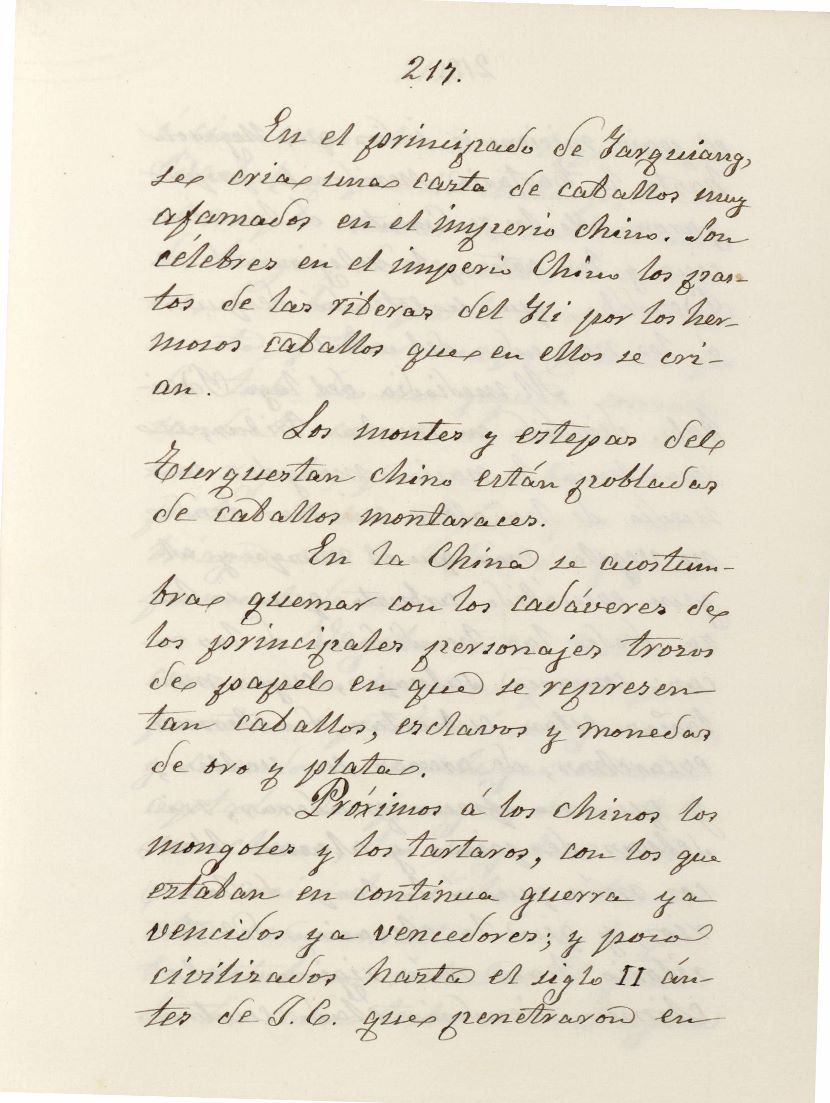 217.
En el principado de Tarquiang,
se cria una casta de caballos muy
afamados en el imperio chino. Son
célebres en el imperio Chino los pas-
tos de las riberas del Ili por los her-
mosos caballos que en ellos se cri-
an.
Los montes y estepas del
Turquestan chino están pobladas
de caballos montaraces.
En la China se acostum-
bra quemar con los cadáveres de
los principales personajes trozos
de papel en que se represen-
tan caballos, esclavos y monedas
de oro y plata.
Próximos á los chinos los
mongoles y los tartaros, con los que
estaban en continua guerra ya
vencidos ya vencedores; y poco
civilizados hasta el siglo II án-
tes de J. C. que penetraron en